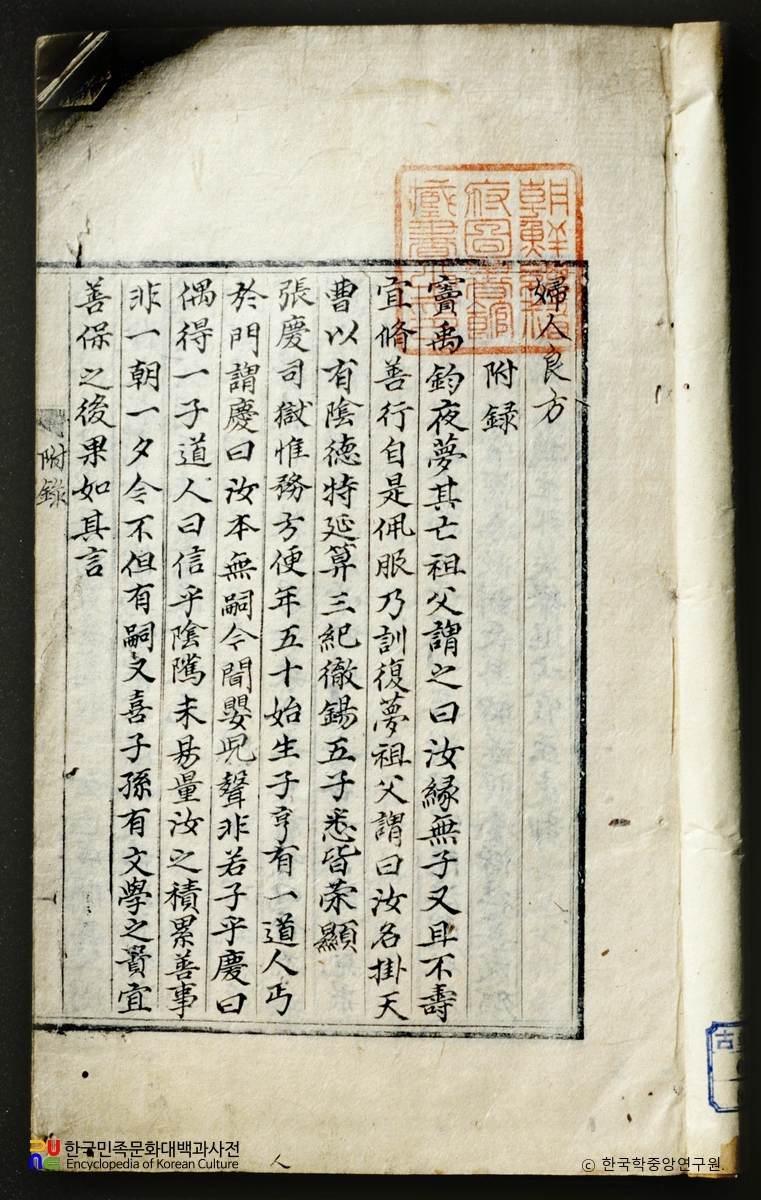 婦人良方
附録
竇禹鈞夜夢其亡祖父謂之曰汝緣無子又且不壽
宜脩善行自是佩服乃訓復夢祖父謂曰汝名掛天
曹以有陰德特延算三紀徹錫五子悉皆荣顯
張慶司獄惟務方便年五十始生子亨有一道人丐
於門謂慶曰汝本無嗣今聞嬰児聲非若子乎慶曰
偶得一子道人曰信乎陰隲未易量汝之積累善事
非一朝一夕今不但有嗣又喜子孫有文學之貴宜
善保之後果如其言
附錄
朝鮮總督
府圖書館
藏書之印
古
한국민족문화대백과사전
Encyclopedia of Korean Culture
© 한국학중앙연구원.